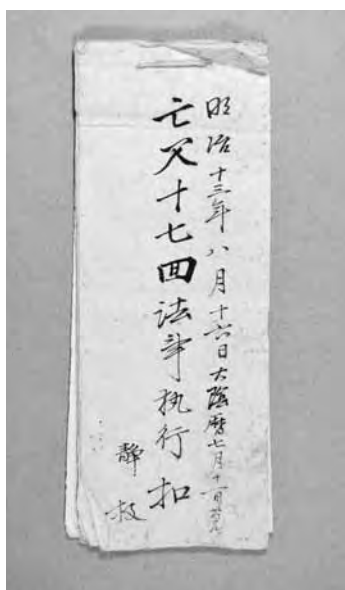 明治十三年八月十六日大陰暦七月十一日
亡父十七回法事执行扣
靜枝